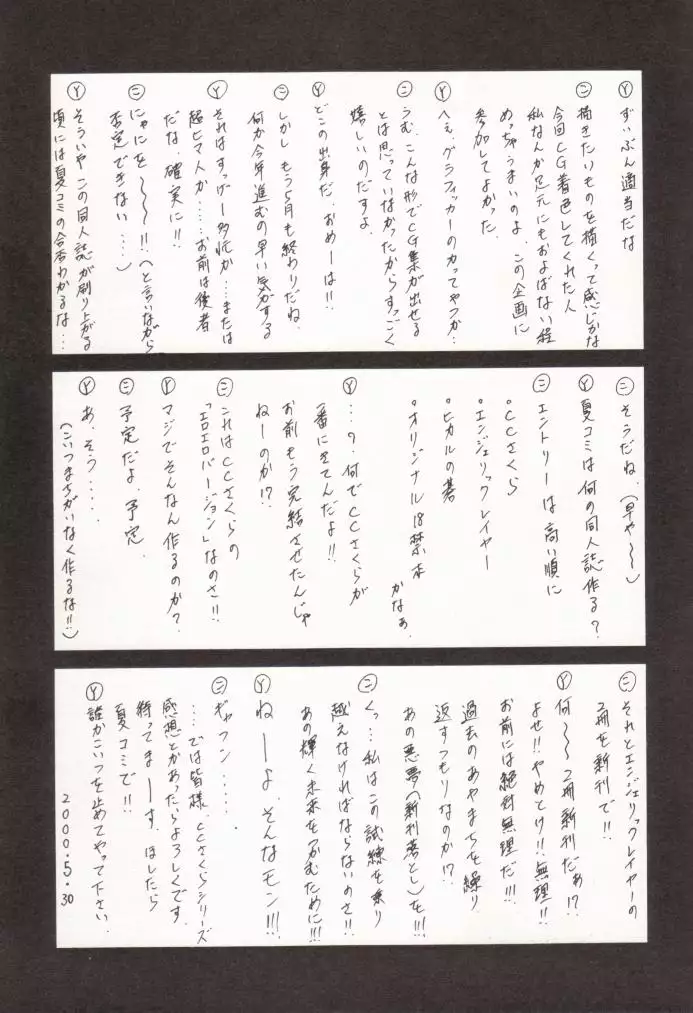 Ⓨ ずいぶん適当だな
㊁ 描きたいものを描くって感じかな
今回CG着色してくれた人
私なんか足元にもおよばない程
めっちゃうまいのよ、この企画に
参加してよかった。
Ⓨ へぇ、グラフィッカーのカってやつか…
㊁ うむ、こんな形でCG集が出せる
とは思っていなかったからすっごく
嬉しいのだすよ
Ⓨ どこの出身だ、おめーは!!
㊁ しかし もう5月も終わりだね、
何か今年進むの早い気がする
Ⓨ それはすっげー多忙か……または
超ヒマ人か……お前は後者
だな、確実に!!
㊁ にゃにを〜〜〜!!(と言いながら
否定できない……)
Ⓨ そういや この同人誌が刷り上がる
頃には夏コミの合否わかるな…
㊁ そうだね、(早や〜〜)
Ⓨ 夏コミは何の同人誌作る?
㊁ エントリーは高い順に
•CCさくら
•エンジェリックレイヤー
•ヒカルの碁
•オリジナル18禁本
かなぁ、
Ⓨ …の、何でCCさくらが
一番にきてんだよ!!
お前もう完結させたんじゃ
ねーのか!?
㊁ これはCCさくらの
「エロエロバージョン」なのさ!!
Ⓨ マジでそんなん作るのか?
㊁ 予定だよ、予定、
Ⓨ あ、そう……
(こいつまちがいなく作るな!!)
㊁ それとエンジェリックレイヤーの
2冊を新刊で!!
Ⓨ 何〜〜2冊新刊だぁ!?
よせ!!やめとけ!!無理!!
お前には絶対無理だ!!!
過去のあやまちを繰り
返すつもりなのか!?
あの悪夢(新刊落とし)を!!!
㊁ くっ…私はこの試練を乗り
越えなければならないのさ!!
あの輝く未来をつかむために!!!
Ⓨ ねーーよ そんなモン!!!
㊁ ギャフン……
……では皆様、CCさくらシリーズ
感想とかあったらよろしくです。
待ってまーーす、ほしたら
夏コミで!!
Ⓨ 誰かこいつを止めてやって下さい、
2000.5.30